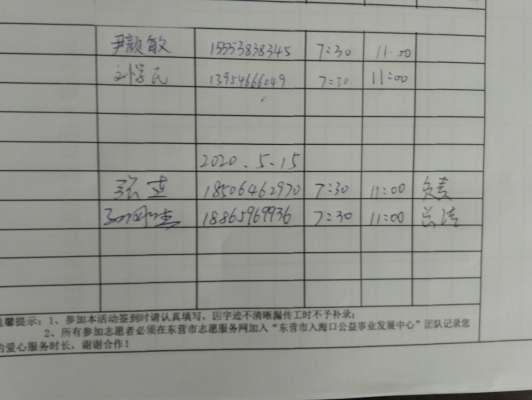 尹颜敏 15553838345 7:30 11:00
刘学民 13954666049 7:30 11:00
2020.5.15
张建 18506462970 7:30 11:00 负责
18865969936 7:30 11:00
温馨提示:1、参加本活动签到时请认真填写,因字迹不清晰漏传工时不予补录;
2、所有参加志愿者必须在东营市志愿服务网加入“东营市入海口公益事业发展中心”团队记录您
的爱心服务时长,谢谢合作!